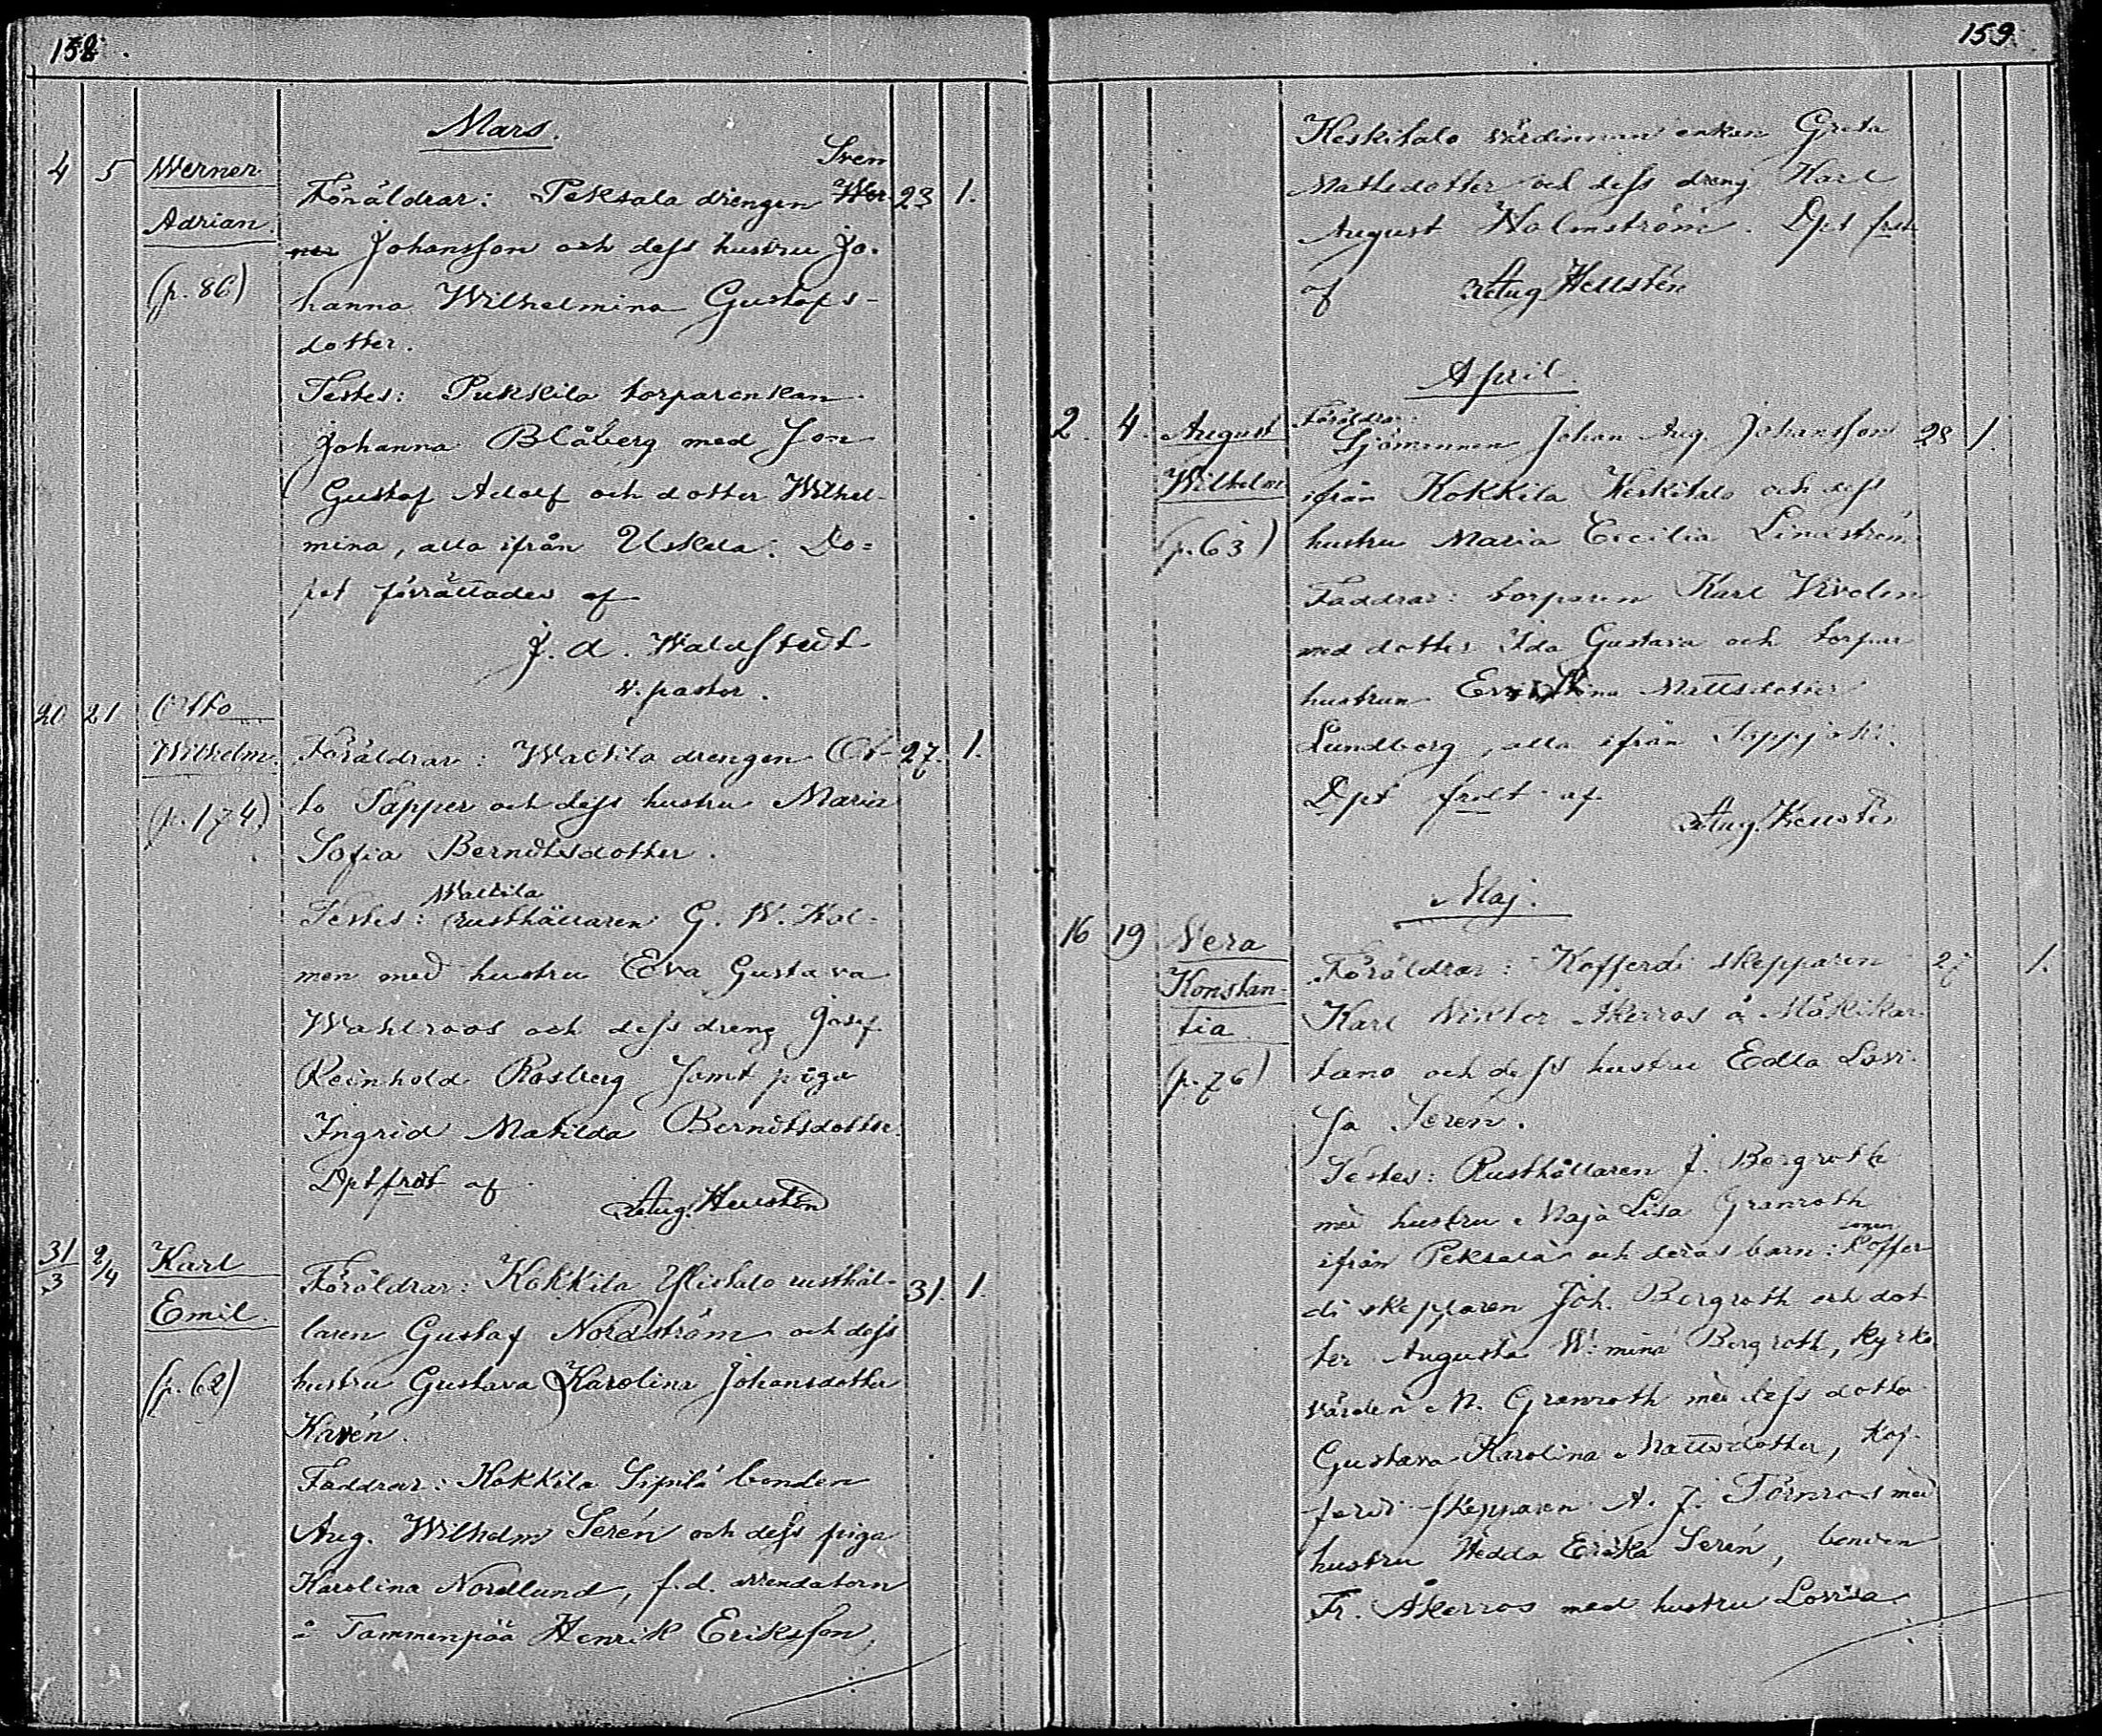 158.
Mars.
4 5 Werner Sven
Föräldrar: Peksala drengen Wer- 23 1.
Adrian.
ner Johansson och dess hustru Jo-
(p. 86)
hanna Wilhelmina Gustafs-
dotter.
Testes: Pukkila torparenkan
Johanna Blåberg med Son
Gustaf Adolf och dotter Wilhel-
mina, alla ifrån Uskela. Do=
pet förrättades af
J. A. Waldstedt
v. pastor.
20 21 Otto
Wilhelm. Föräldrar: Waltila drengen Ot- 27. 1.
(p. 174) to Tapper och dess hustru Maria
Sofia Berndtsdotter.
Waltila
Testes: rusthållaren G. W. Hol-
men med hustru Eva Gustava
Wahlroos och dess dreng Josef
Reinhold Rosberg samt piga
Ingrid Matilda Berndtsdotter.
Dpt frdt af
Aug. Hellstén
31/3 2/4 Karl
Föräldrar: Kokkila Ylistalo rusthål- 31. 1.
Emil.
laren Gustaf Nordström och dess
(p. 62) hustru Gustava Karolina Johansdotter
Kavén.
Faddrar: Kokkila Sipilä bonden
Aug. Wilhelm Serén och dess piga
Karolina Nordlund, f.d. arrendatorn
å Tammenpää Henrik Eriksson,
159.
Keskitalo värdinnan enkan Greta
Mattsdotter och dess dreng Karl
August Holmström. Dpt frdt
af Aug Hellstén
April.
2. 4. August Föräldrar:
Sjömannen Johan Aug. Johansson 28 1.
Wilhelm
ifrån Kokkila Keskitalo och dess
(p. 63) hustru Maria Cecilia Lindström.
Faddrar: torparen Karl Vivolin
med dotter Ida Gustava och torpar
hustrun Eva Stina Mattsdotter
Lundberg, alla ifrån Teppjoki.
Dpt frdt af
Aug. Hellstén
Maj.
16 19 Vera
Föräldrar: Kofferdi skepparen 27 1.
Konstan-
tia. Karl Viktor Åkerros å Mäkikar-
(p. 76) tano och dess hustru Edla Lovi-
sa Serén.
Testes: Rusthållaren J. Bergroth
med hustru Maja Lisa Granroth
sonen
ifrån Peksala och deras barn: Koffer
di skepparen Joh. Bergroth och dot
ter Augusta W:mina Bergroth, kyrko
värden M. Granroth med dess dotter
Gustava Karolina Mattsdotter, Kof-
ferdi skepparen A. J. Törnros med
hustru Hedda Erika Serén, bonden
Fr. Åkerros med hustru Lovisa